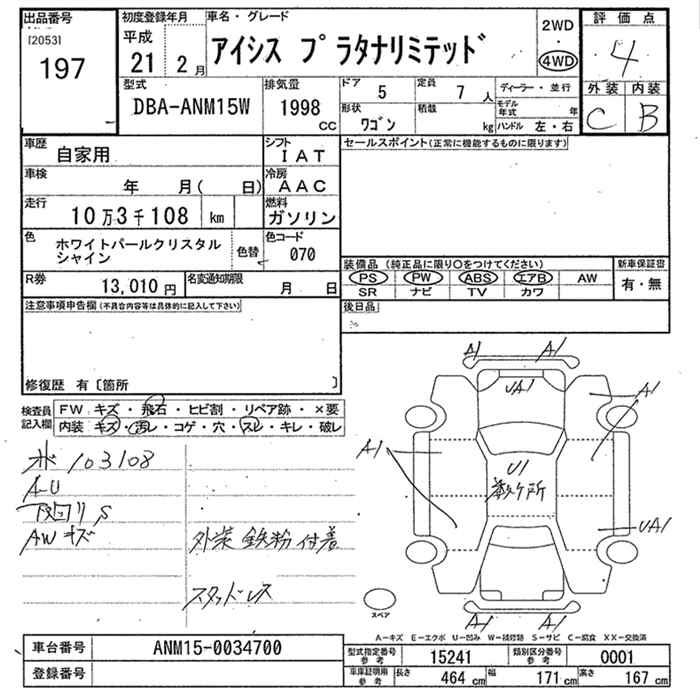 出品番号 初度登録年月 車名・グレード 2WD 評価点
[2053] 平成 ・
197 21 2月 アイシス プラタナリミテッド 4WD 4
型式 排気量 ドア 5 定員 7人 ディーラー・並行 外装 内装
DBA-ANM15W 1998 cc 形状 ワゴン 積載 kg モデル年式 年 C B
ハンドル 左・右
車歴 自家用 シフト IAT セールスポイント(正常に機能するものに限ります)
車検 年 月( 日) 冷房 AAC
走行 10万3千108 km 燃料 ガソリン
色 ホワイトパールクリスタル 色替 色コード 070
シャイン
装備品(純正品に限り○をつけてください) 新車保証書
R券 13,010円 名変通知期限 月 日 PS PW ABS エアB AW 有・無
SR ナビ TV カワ
注意事項申告欄(不具合内容等は具体的に記入して下さい) 後日品
修復歴 有〔箇所 〕
検査員 FW キズ・飛石・ヒビ割・リペア跡・×要
記入欄 内装 キズ・汚レ・コゲ・穴・スレ・キレ・破レ
ボ 103108
A-U
下回り S
AWキズ 外装鉄粉付着
スタッドレス
A1 A1
UA1 A1
A1 U1
数ケ所
UA1
A1 A1
スペア
A-キズ E-エクボ U-凹み W-補修跡 S-サビ C-腐食 XX-交換済
車台番号 ANM15-0034700 型式指定番号 参考 15241 類別区分番号 参考 0001
登録番号 車庫証明用 参考 長さ 464 cm 幅 171 cm 高さ 167 cm